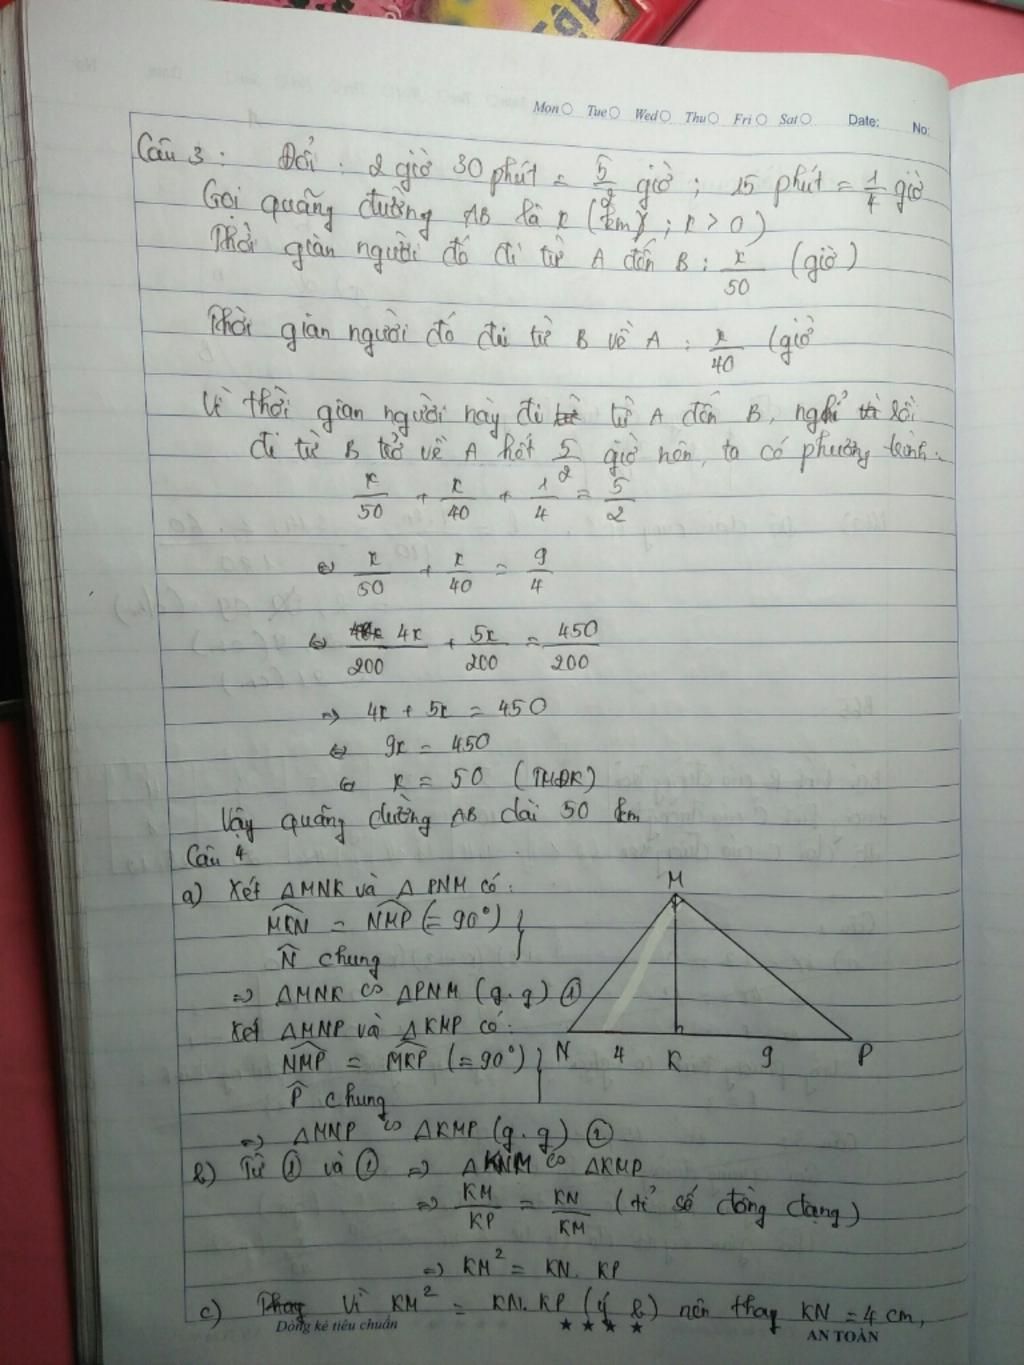 Tập
Mon Tue Wed Thu Fri Sat Date: No:
Câu 3 : Đổi : 2 giờ 30 phút = 5/2 giờ ; 15 phút = 1/4 giờ
Gọi quãng đường AB là x (km) ; x > 0)
Thời gian người đó đi từ A đến B : x/50 (giờ)
Thời gian người đó đi từ B về A : x/40 (giờ
Vì thời gian người này đi từ A đến B, nghỉ rồi
đi từ B trở về A hết 5/2 giờ nên, ta có phương trình.
x/50 + x/40 + 1/4 = 5/2
⇔ x/50 + x/40 = 9/4
⇔ 4x/200 + 5x/200 = 450/200
⇒ 4x + 5x = 450
⇔ 9x = 450
⇔ x = 50 (TMĐK)
Vậy quãng đường AB dài 50 km
Câu 4
a) Xét ΔMNK và Δ PNM có :
MKN = NMP (= 90°) }
N chung
⇒ ΔMNK ∽ ΔPNM (g.g) ①
Xét ΔMNP và ΔKMP có :
NMP = MKP (= 90°) }
P chung
⇒ ΔMNP ∽ ΔKMP (g.g) ②
M
N 4 K 9 P
b) Từ ① và ① ⇒ ΔKNM ∽ ΔKMP
⇒ KM/KP = KN/KM (tỉ số đồng dạng)
⇒ KM² = KN. KP
c) Thay Vì KM² = KN.KP (ý b) nên thay KN = 4 cm,
Dòng kẻ tiêu chuẩn ★ ★ ★ ★ AN TOÀN